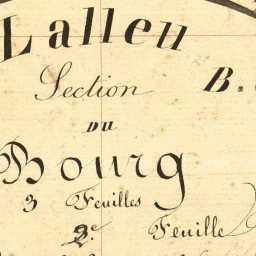 Lalleu
Section B.
DU
Bourg
3 Feuilles
2e Feuille